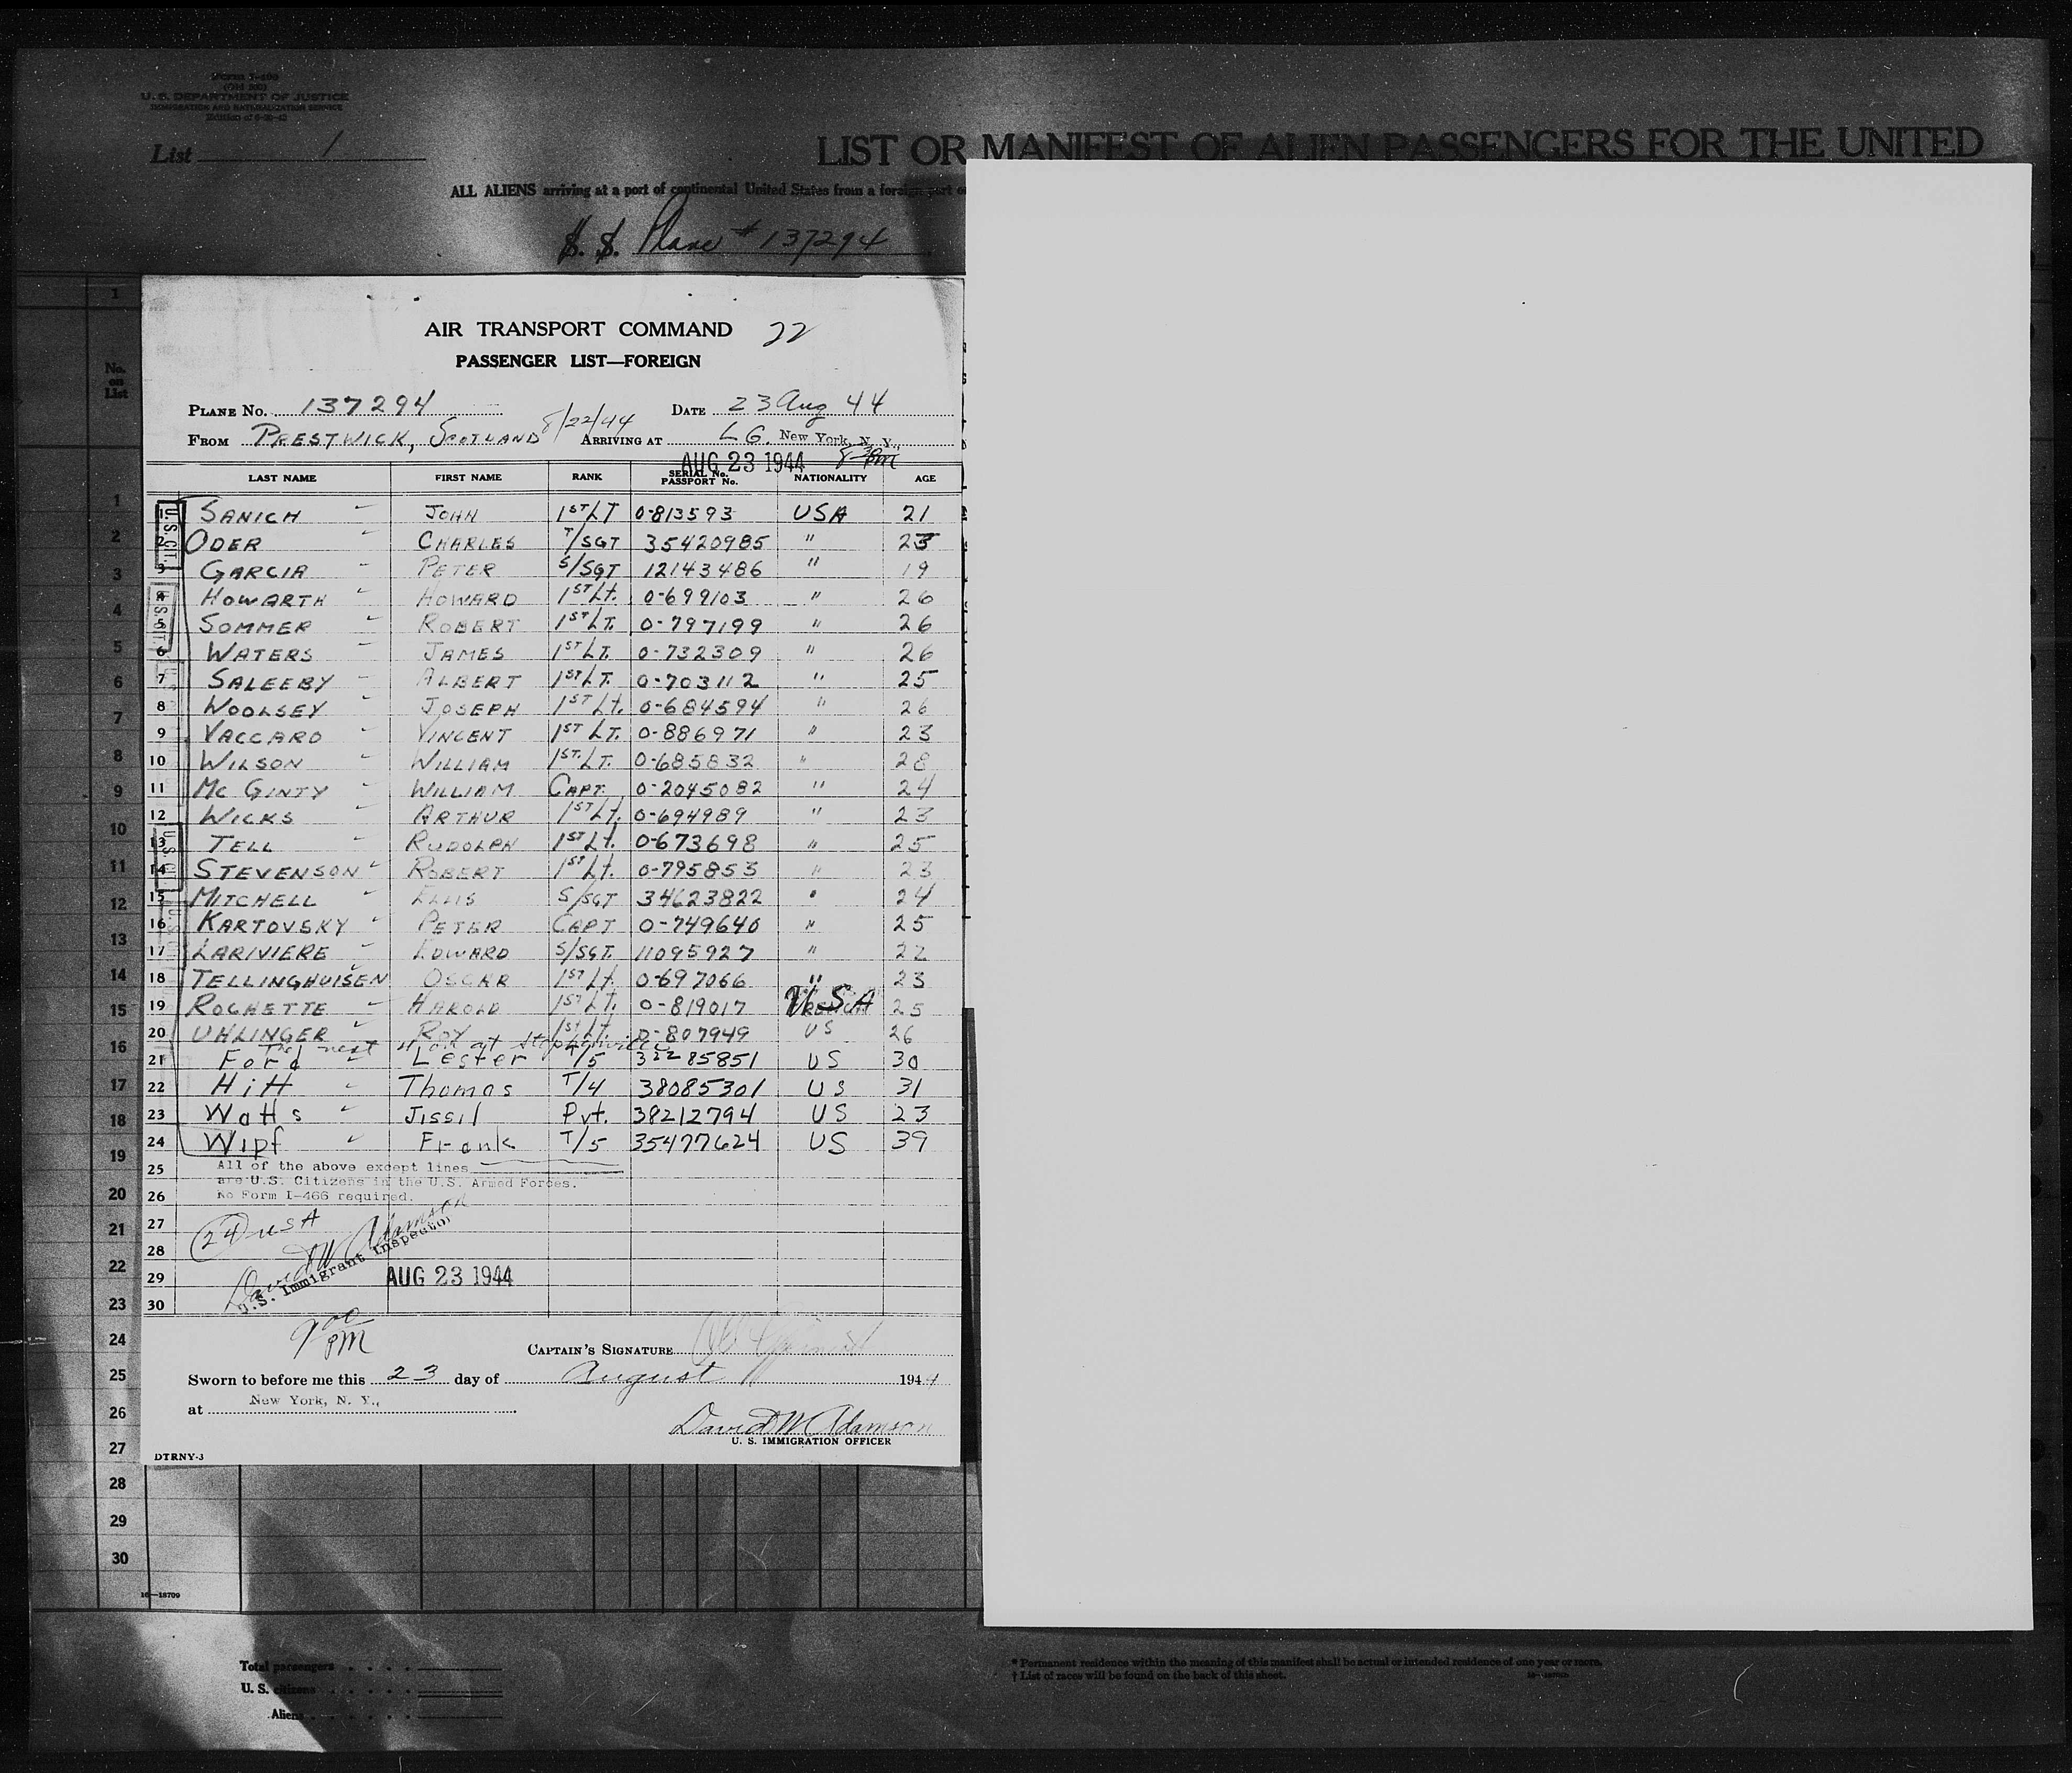 Form I-466
U. S. DEPARTMENT OF JUSTICE
IMMIGRATION AND NATURALIZATION SERVICE
List 1
LIST OR MANIFEST OF ALIEN PASSENGERS FOR THE UNITED
ALL ALIENS arriving at a port of continental United States from a foreign port
S. S. Plane # 137294
No. on List
AIR TRANSPORT COMMAND 22
PASSENGER LIST—FOREIGN
PLANE No. 137294 DATE 23 Aug 44
FROM PRESTWICK, SCOTLAND 8/22/44 ARRIVING AT LG. New York, N. Y.,
AUG 23 1944 8 30 PM
LAST NAME FIRST NAME RANK SERIAL No. PASSPORT No. NATIONALITY AGE
1 SANICH JOHN 1ST LT 0-813593 USA 21
2 ODER CHARLES T/SGT 35420985 " 23
3 GARCIA PETER S/SGT 12143486 " 19
4 HOWARTH HOWARD 1ST Lt. 0-699103 " 26
5 SOMMER ROBERT 1ST LT. 0-797199 " 26
6 WATERS JAMES 1ST LT. 0-732309 " 26
7 SALEEBY ALBERT 1ST LT. 0-703112 " 25
8 WOOLSEY JOSEPH 1ST Lt. 0-684594 " 26
9 VACCARO VINCENT 1ST LT. 0-886971 " 23
10 WILSON WILLIAM 1ST. LT. 0-685832 " 28
11 MC GINTY WILLIAM CAPT. 0-2045082 " 24
12 WICKS ARTHUR 1ST Lt. 0-694989 " 23
13 TELL RUDOLPH 1ST Lt. 0-673698 " 25
14 STEVENSON ROBERT 1ST Lt. 0-795853 " 23
15 MITCHELL ELLIS S/SGT 34623822 " 24
16 KARTOVSKY PETER CAPT 0-749640 " 25
17 LARIVIERE EDWARD S/SGT. 11095927 " 22
18 TELLINGHUISEN OSCAR 1ST Lt. 0-697066 " 23
19 ROCHETTE HAROLD 1ST LT. 0-819017 U.S.A 25
20 UHLINGER ROY 1ST LT. 0-807949 US 26
The next 4 on at Stephenville
21 Ford Lester T/5 33285851 US 30
22 Hitt Thomas T/4 38085301 US 31
23 Watts Jissil Pvt. 38212794 US 23
24 Wipf Frank T/5 35477624 US 39
25 All of the above except lines
are U.S. Citizens in the U.S. Armed Forces.
26 No Form I-466 required.
27 24 USA
28 David W Adamson
29 U.S. Immigrant Inspector AUG 23 1944
30
9 00 PM
CAPTAIN'S SIGNATURE
Sworn to before me this 23 day of August 1944
at New York, N. Y.,
David W Adamson
U. S. IMMIGRATION OFFICER
DTRNY-3
1
2
3
4
5
6
7
8
9
10
11
12
13
14
15
16
17
18
19
20
21
22
23
24
25
26
27
28
29
30
16—18709
Total passengers
U. S. citizens
Aliens
* Permanent residence within the meaning of this manifest shall be actual or intended residence of one year or more.
† List of races will be found on the back of this sheet.